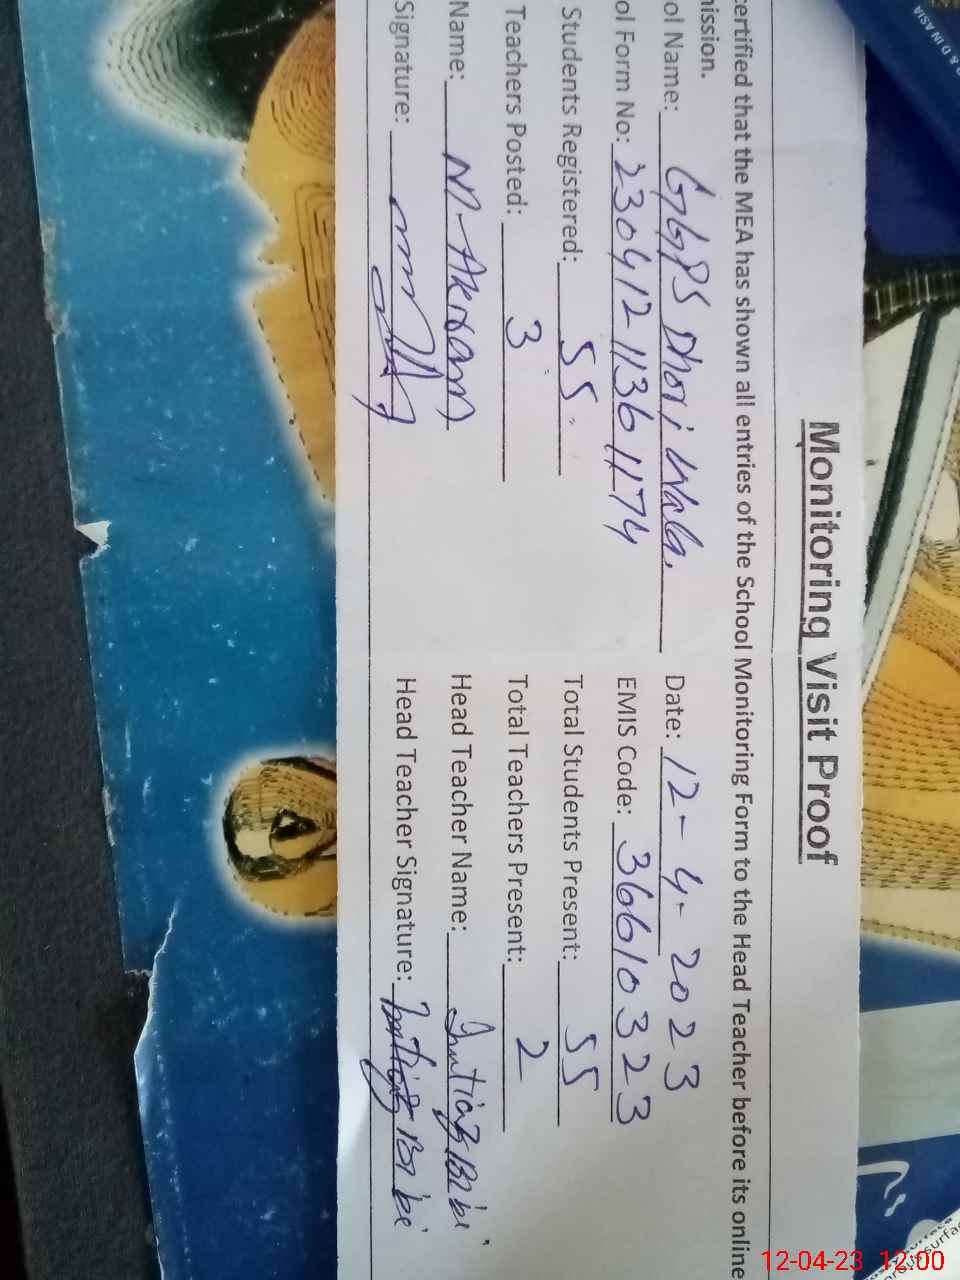 Monitoring Visit Proof
certified that the MEA has shown all entries of the School Monitoring Form to the Head Teacher before its online
mission.
ol Name: GGPS Dhori Wala. Date: 12-4-2023
ol Form No: 230412-1136 1174 EMIS Code: 36610323
Students Registered: 55 Total Students Present: 55
Teachers Posted: 3 Total Teachers Present: 2
Name: M-Akram Head Teacher Name: Imtiaz Bibi
Signature: Head Teacher Signature: Imtiaz Bibi
D IN ASIA
12-04-23 12:00